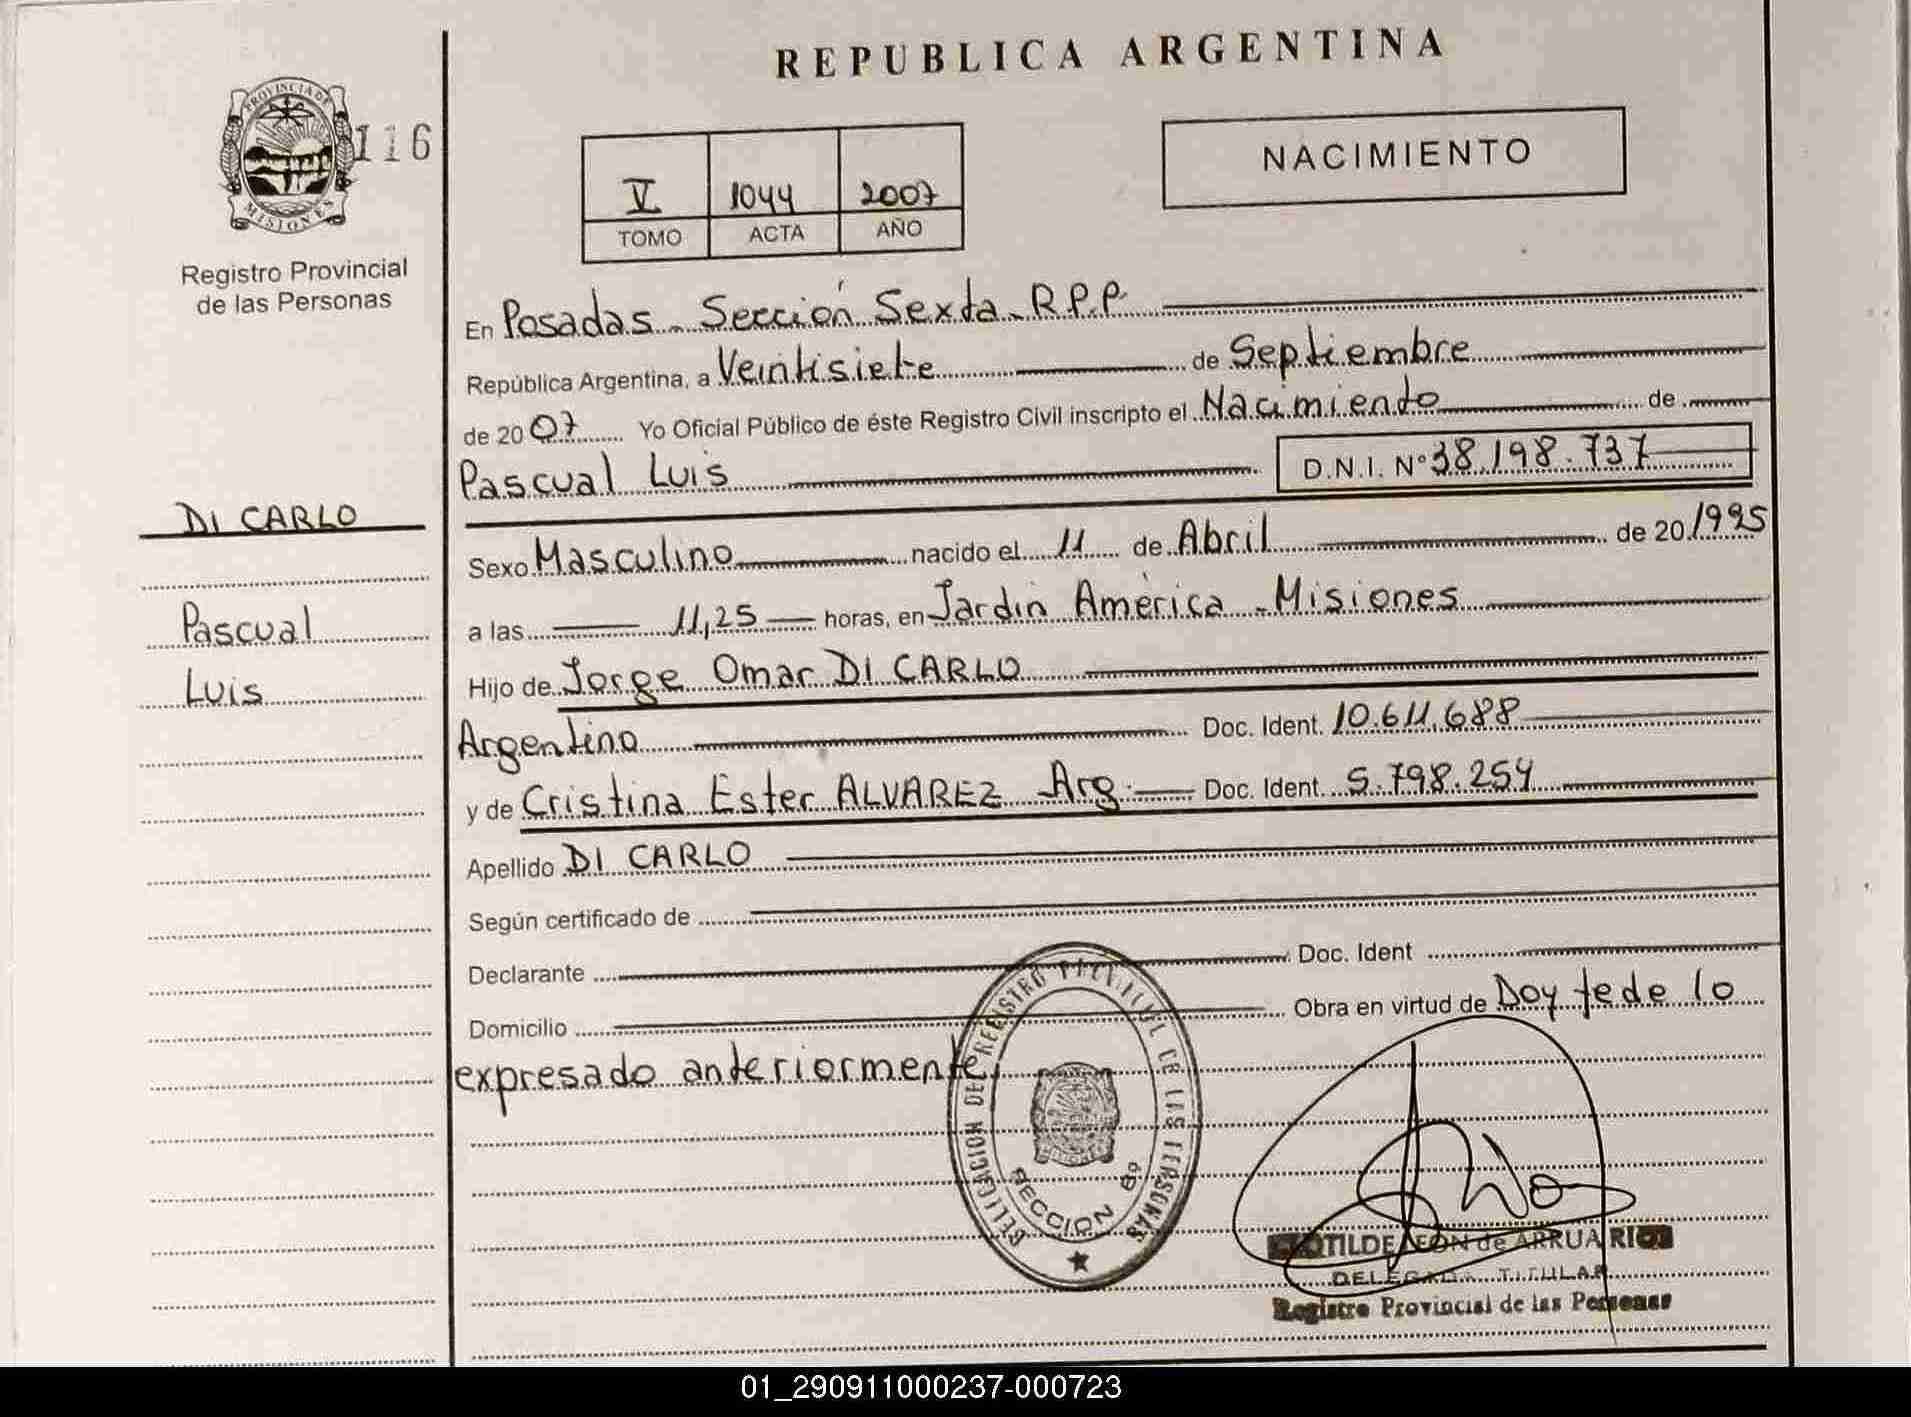 REPUBLICA ARGENTINA
PROVINCIA DE
MISIONES
116
Registro Provincial
de las Personas
V 1044 2007
TOMO ACTA AÑO
NACIMIENTO
En Posadas - Sección Sexta - R.P.P.
República Argentina, a Veintisiete de Septiembre
de 2007 Yo Oficial Público de éste Registro Civil inscripto el Nacimiento de
Pascual Luis D.N.I. Nº 38.198.737
DI CARLO
Sexo Masculino nacido el 11 de Abril de 20 1995
Pascual
a las 11,25 horas, en Jardin América - Misiones
Luis
Hijo de Jorge Omar DI CARLO
Argentino Doc. Ident. 10.611.688
y de Cristina Ester ALVAREZ - Arg. Doc. Ident. 5.798.254
Apellido DI CARLO
Según certificado de
Declarante Doc. Ident
Domicilio Obra en virtud de Doy fe de lo
expresado anteriormente
DELEGACION DE REGISTRO PROVINCIAL DE LAS PERSONAS
SECCION 6º
LEON de ARRUA
DELEGADA TITULAR
Registro Provincial de las Personas
01_290911000237-000723